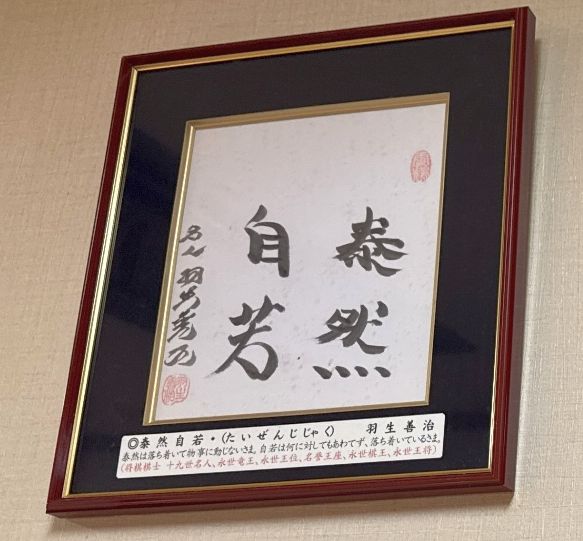 泰然
自若
名人 羽生善治
◎泰然自若・(たいぜんじじゃく) 羽生善治
泰然は落ち着いて物事に動じないさま。自若は何に対してもあわてず、落ち着いているさま。
(将棋棋士 十九世名人、永世竜王、永世王位、名誉王座、永世棋王、永世王将)